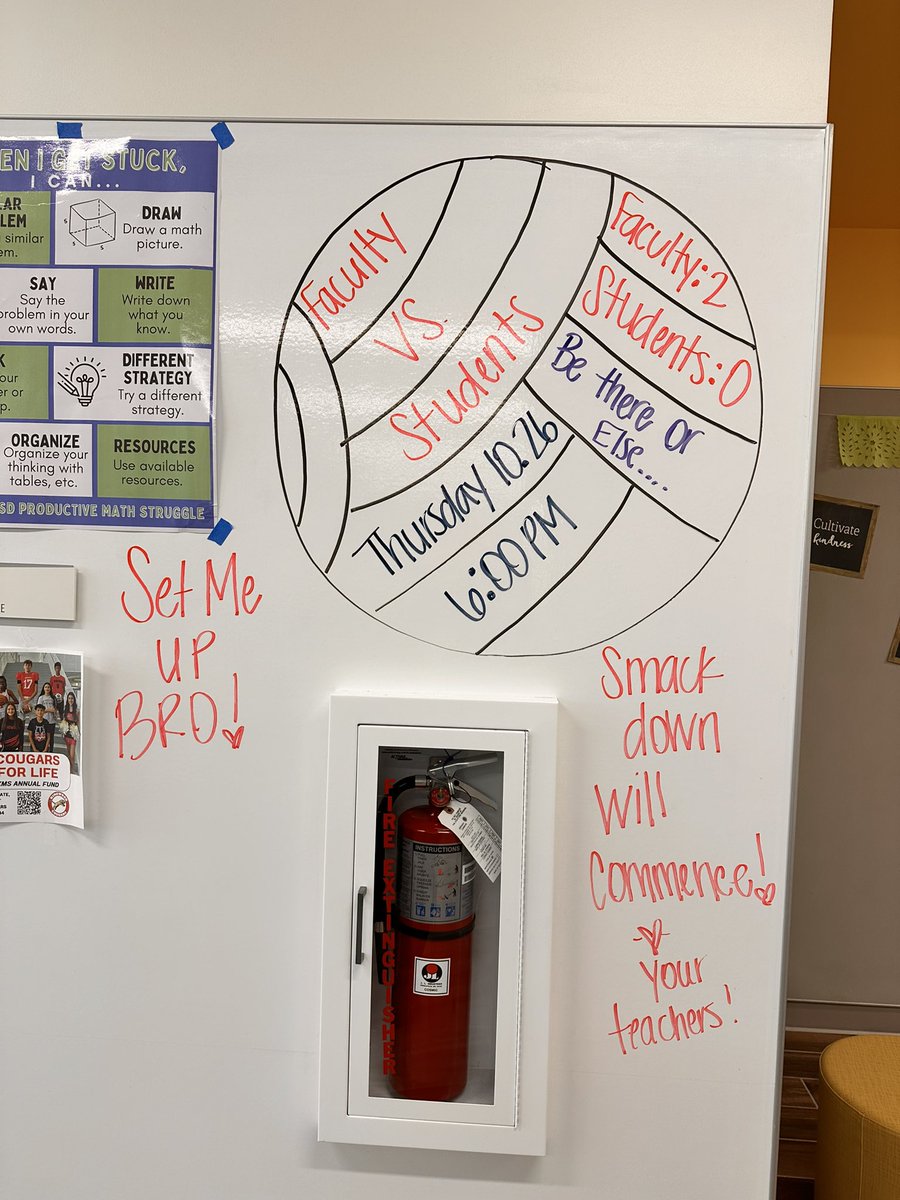 EN I GET STUCK,
I CAN...
LAR
LEM
similar
em.
DRAW
Draw a math
picture.
SAY
Say the
problem in your
own words.
WRITE
Write down
what you
know.
DIFFERENT
STRATEGY
Try a different
strategy.
ORGANIZE
Organize your
thinking with
tables, etc.
RESOURCES
Use available
resources.
SD PRODUCTIVE MATH STRUGGLE
Faculty
VS.
Students
Thursday 10.26
6:00PM
Faculty:2
Students:0
Be there Or
Else....
Set Me
UP
BRO!
COUGARS
FOR LIFE
KMS ANNUAL FUND
FIRE EXTINGUISHER
INSTRUCTIONS
Smack
down
will
Commence!
Your
teachers!
Cultivate
kindness